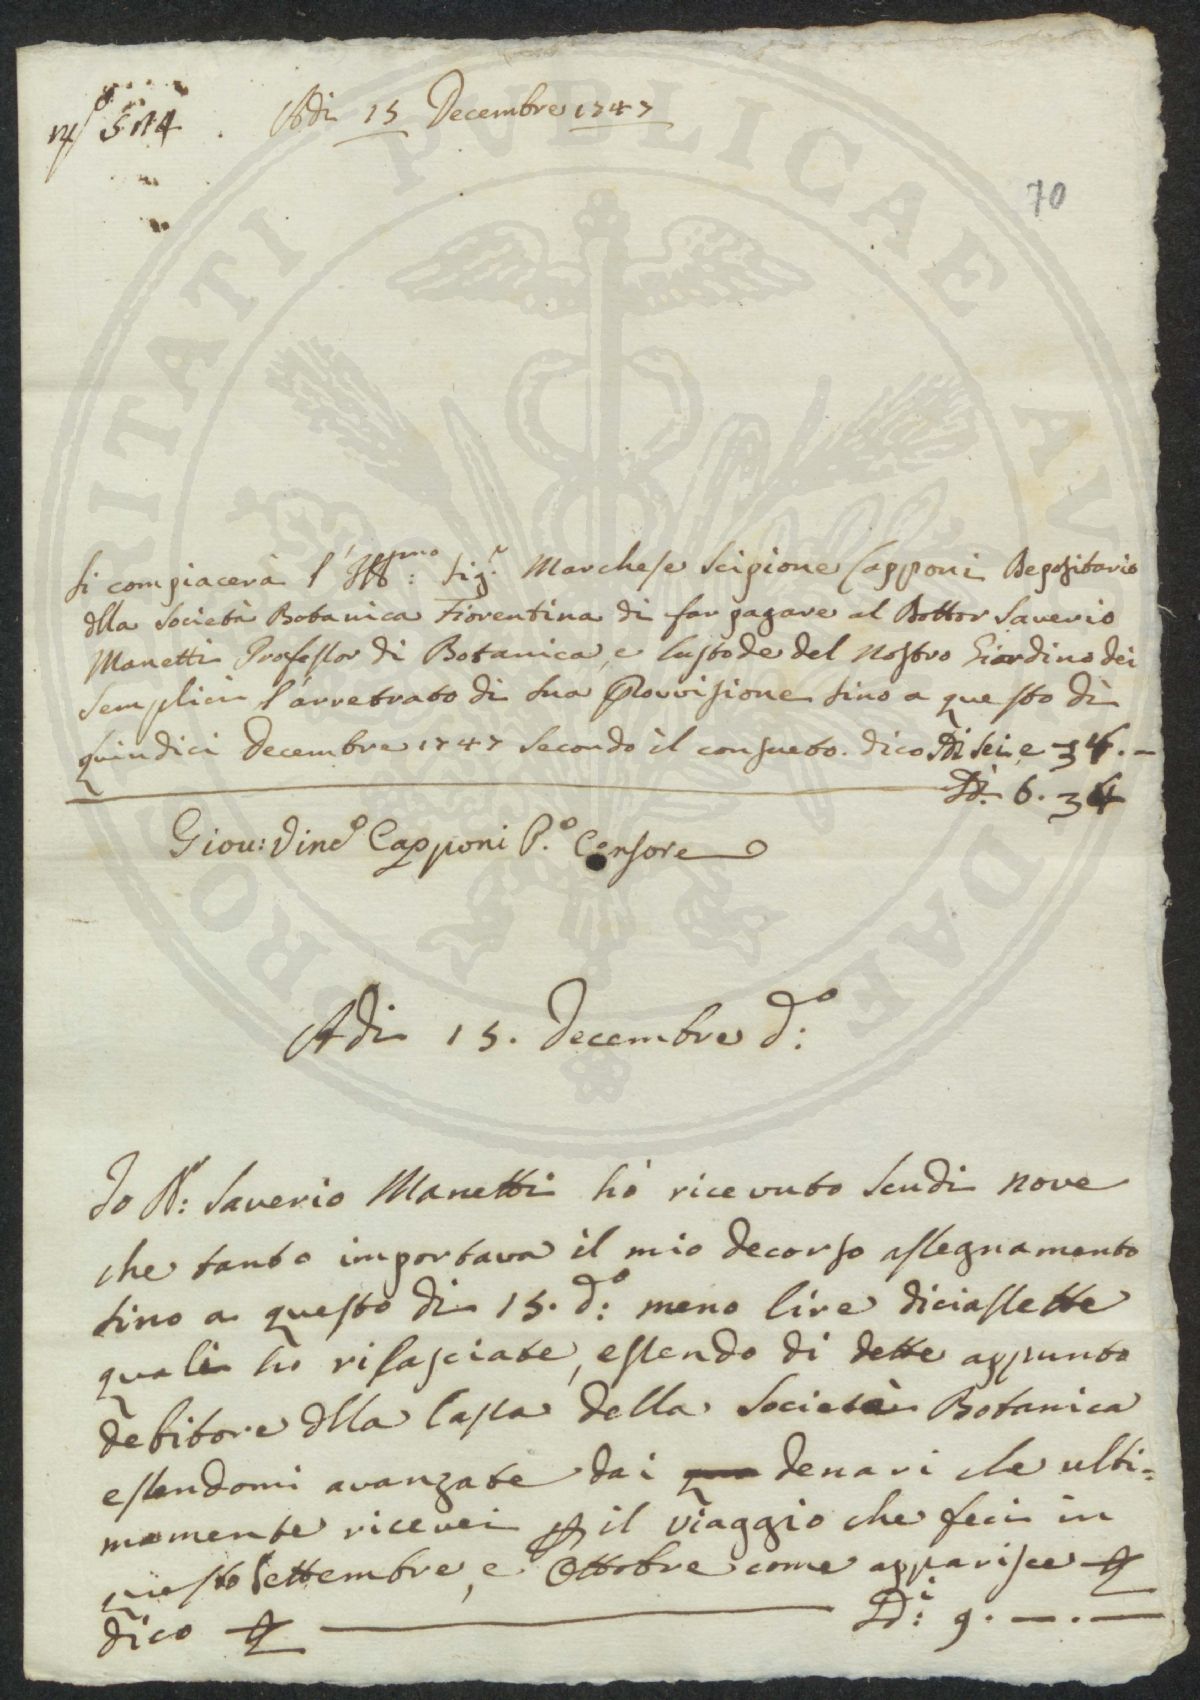 Adi 15 Decembre 1747
70
Si compiacerà l'Ill:mo Sig.r Marchese Scipione Capponi Depositario
dlla Società Botanica Fiorentina di far pagare al Dottor Saverio
Manetti Professor di Botanica, e Custode del Nostro Giardino dei
Semplici l'arretrato di sua Provvisione sino a questo dì
quindici Decembre 1747 secondo il consueto. dico Di sei e 
6. 
Giou: Vinc.o Capponi P.o Censore
Adi 15. Decembre d:o
Io D:r Saverio Manetti hò ricevuto Scudi nove
che tanto importava il mio decorso assegnamento
sino a questo di 15. d:o meno lire diciassette
quali ho rilasciate, essendo di dette appunto
debitore dlla Cassa della Società Botanica
essendomi avanzate dai denari che ulti=
mamente ricevei il viaggio che feci in
questo Settembre, e Ottobre come apparisce
dico D:i 9. — . —
PROSPERITATI PVBLICAE AVGENDAE